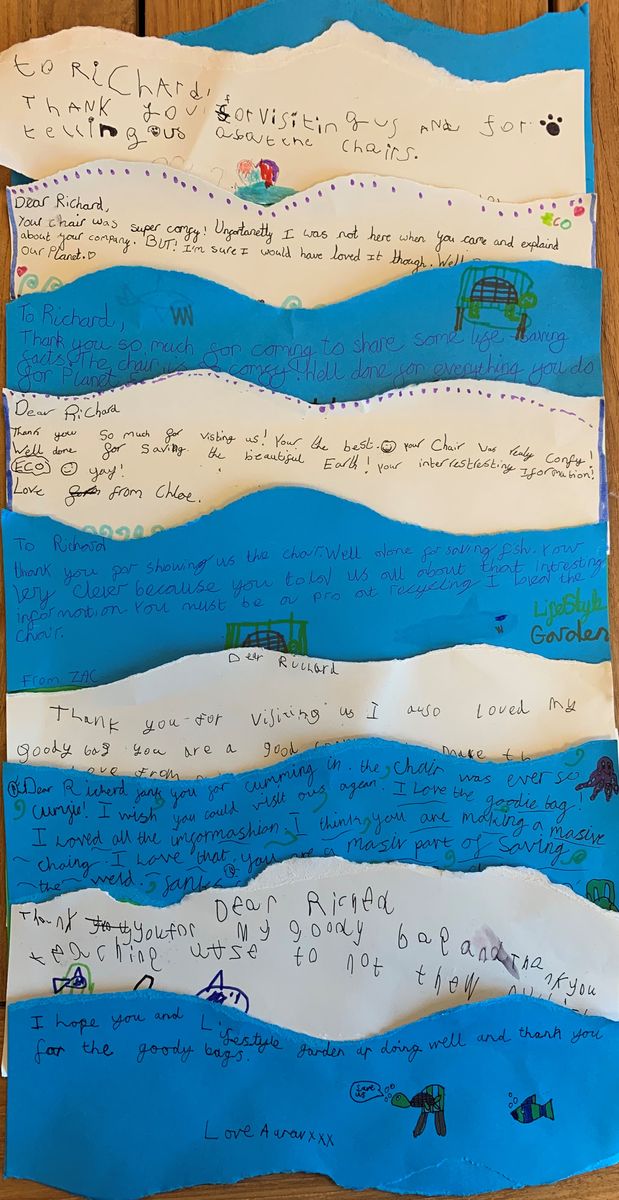 to RiCHARD,
THANK YOU for visiting us AND for
telling us about the chairs.
Dear Richard,
ECO
Your chair was super comfy! Unfortanetly I was not here when you came and explaind
about your company. BUT! I'm sure I would have loved it though. Well
our Planet.
To Richard,
Thank you so much for coming to share some life saving
facts! The chair was comfy! Well done for everything you do
for Planet
Dear Richard
Thank you so much for visting us! Your the best. your Chair was realy Comfy!
Well done for Saving the beautiful Earth! your interrestresting Iformation!
ECO yay!
Love from Chloe.
To Richard
thank you for showing us the chair. Well done for saving fish. Your
very clever because you told us all about that intresting
information You must be a pro at recycling I loved the
chair.
LifeStyle
Garden
From ZAC
Dear Richard
Thank you for Visiting us I also loved My
goody bag you are a good
love from
Dear Richerd jank you for cumming in. the chair was ever so
cumfie! I wish you could visit ous agean. I Love the goodie bag!
I Loved all the imformashion I think you are making a masive
chaing. I Love that you are a masiv part of Saving
the weld.
Dear Riched
Thank you for My goody bag and Thank you
teaching utse to not thew
I hope you and Lifestyle garden ar doing well and thank you
for the goody bags.
save us
Love Aarav xxx